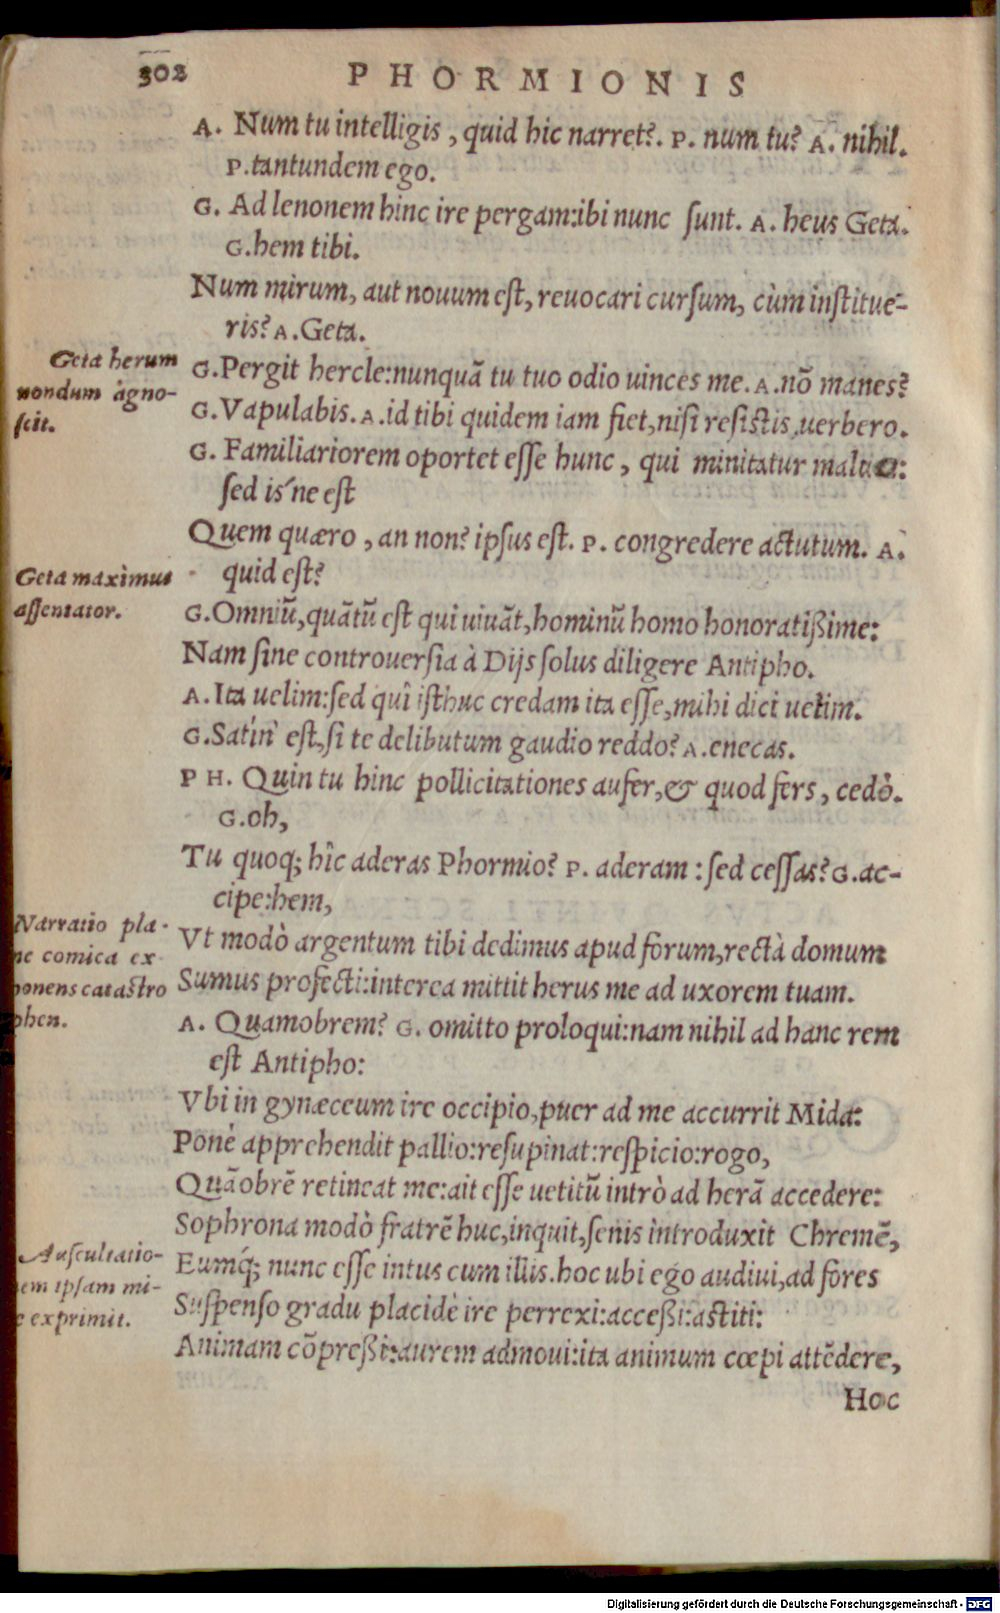 302 PHORMIONIS
A. Num tu intelligis, quid hic narret?. P. num tu? A. nihil.
P. tantundem ego.
G. Ad lenonem hinc ire pergam: ibi nunc ſunt. A. heus Geta.
G. hem tibi.
Num mirum, aut nouum eſt, reuocari curſum, cùm inſtitue-
ris? A. Geta.
Geta herum
nondum agno-
ſcit.
G. Pergit hercle: nunquā tu tuo odio uinces me. A. nō manes?
G. Vapulabis. A. id tibi quidem iam fiet, niſi reſiſtis uerbero.
G. Familiariorem oportet eſſe hunc, qui minitatur malum:
ſed is´ne eſt
Quem quæro, an non? ipſus eſt. P. congredere actutum. A.
quid eſt?
Geta maximus
aſſentator.
G. Omniū, quātū eſt qui uiuāt, hominū homo honoratißime:
Nam ſine controuerſia à Dijs ſolus diligere Antipho.
A. Ita uelim: ſed quî iſthuc credam ita eſſe, mihi dici uelim.
G. Satín' eſt, ſi te delibutum gaudio reddo? A. enecas.
PH. Quin tu hinc pollicitationes aufer, & quod fers, cedò.
G. oh,
Tu quoq; hîc aderas Phormio? P. aderam: ſed ceſſas? G. ac-
cipe: hem,
Narratio pla-
ne comica ex
ponens cataſtro
phen.
Vt modò argentum tibi dedimus apud forum, rectà domum
Sumus profecti: interea mittit herus me ad uxorem tuam.
A. Quamobrem? G. omitto proloqui: nam nihil ad hanc rem
eſt Antipho:
Vbi in gynæceum ire occipio, puer ad me accurrit Mida:
Ponè apprehendit pallio: reſupinat: reſpicio: rogo,
Quāobrē retineat me: ait eſſe uetitū intrò ad herā accedere:
Sophrona modò fratrē huc, inquit, ſenis introduxit Chremē,
Auſcultatio-
nem ipſam mi-
e exprimit.
Eumq́; nunc eſſe intus cum illis. hoc ubi ego audiui, ad fores
Suſpenſo gradu placidè ire perrexi: acceßi: aſtiti:
Animam cōpreßi: aurem admoui: ita animum cœpi attēdere,
Hoc
Digitalisierung gefördert durch die Deutsche Forschungsgemeinschaft - DFG